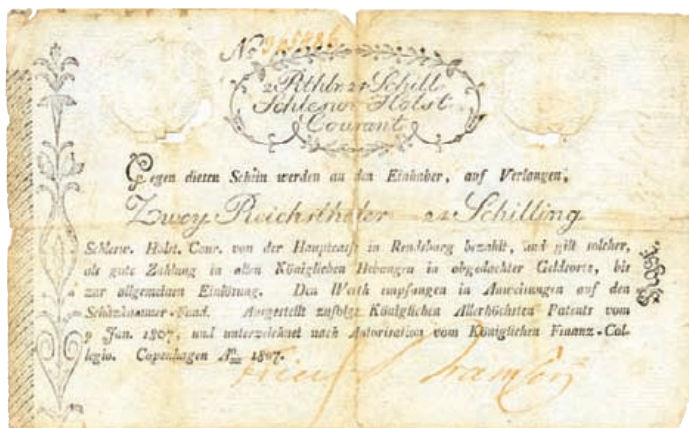 No 345486
2 Rthlr 24 Schill
Schlesw Holst
Courant
Gegen diesen Schein werden an den Einhaber, auf Verlangen,
Zwey Reichsthaler 24 Schilling
Schlesw. Holst. Cour. von der Hauptcasse in Rendsburg bezahlt, und gilt solcher,
als gute Zahlung in allen Königlichen Hebungen in obgedachter Geldsorte, bis
zur allgemeinen Einlösung. Den Werth empfangen in Anweisungen auf den
Schatzkammer-Fond. Ausgestellt zufolge Königlichen Allerhöchsten Patents vom
9 Jan. 1807, und unterzeichnet nach Autorisation vom Königlichen Finanz-Col-
legio. Copenhagen Ao 1807.